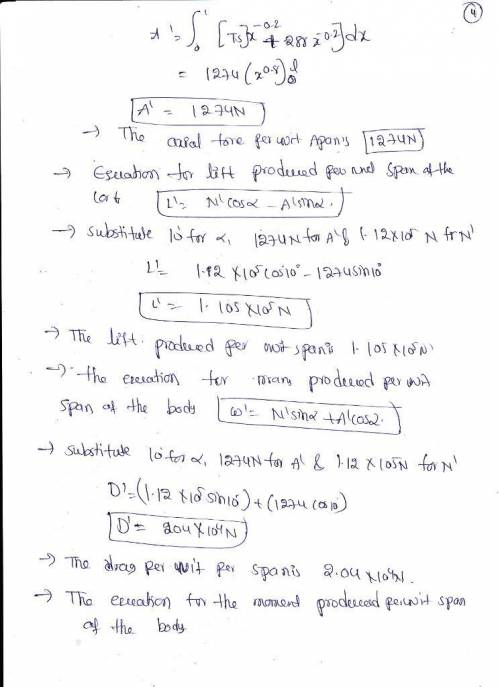 4
A' = ∫₀¹ [731x^-0.2 + 288x^-0.2]dx
= 1274 (x^0.8)₀¹
A' = 1274N
→ The axial fore per unit Apan is 1274N
→ Equation for lift produced per unit span of the
L' = N'cosα - A'sinα.
→ Substitute 10° for α, 1274N for A' & 1.12×10⁵ N fr N'
L' = 1.12 ×10⁵cos10° - 1274sin10°
L' = 1.105×10⁵N
→ The lift produced per unit span is 1.105×10⁵N'
→ the equation for produced per unit
span of the body = N'sinα + A'cosα.
→ Substitute 10° for α, 1274N for A' & 1.12 ×10⁵N for N'
D' = (1.12 ×10⁵sin10°) + (1274 cos10°)
D' = 2.04×10⁴N
→ The drag per unit per span is 2.04×10⁴N.
→ The equation for the moment produced per unit span
of the body